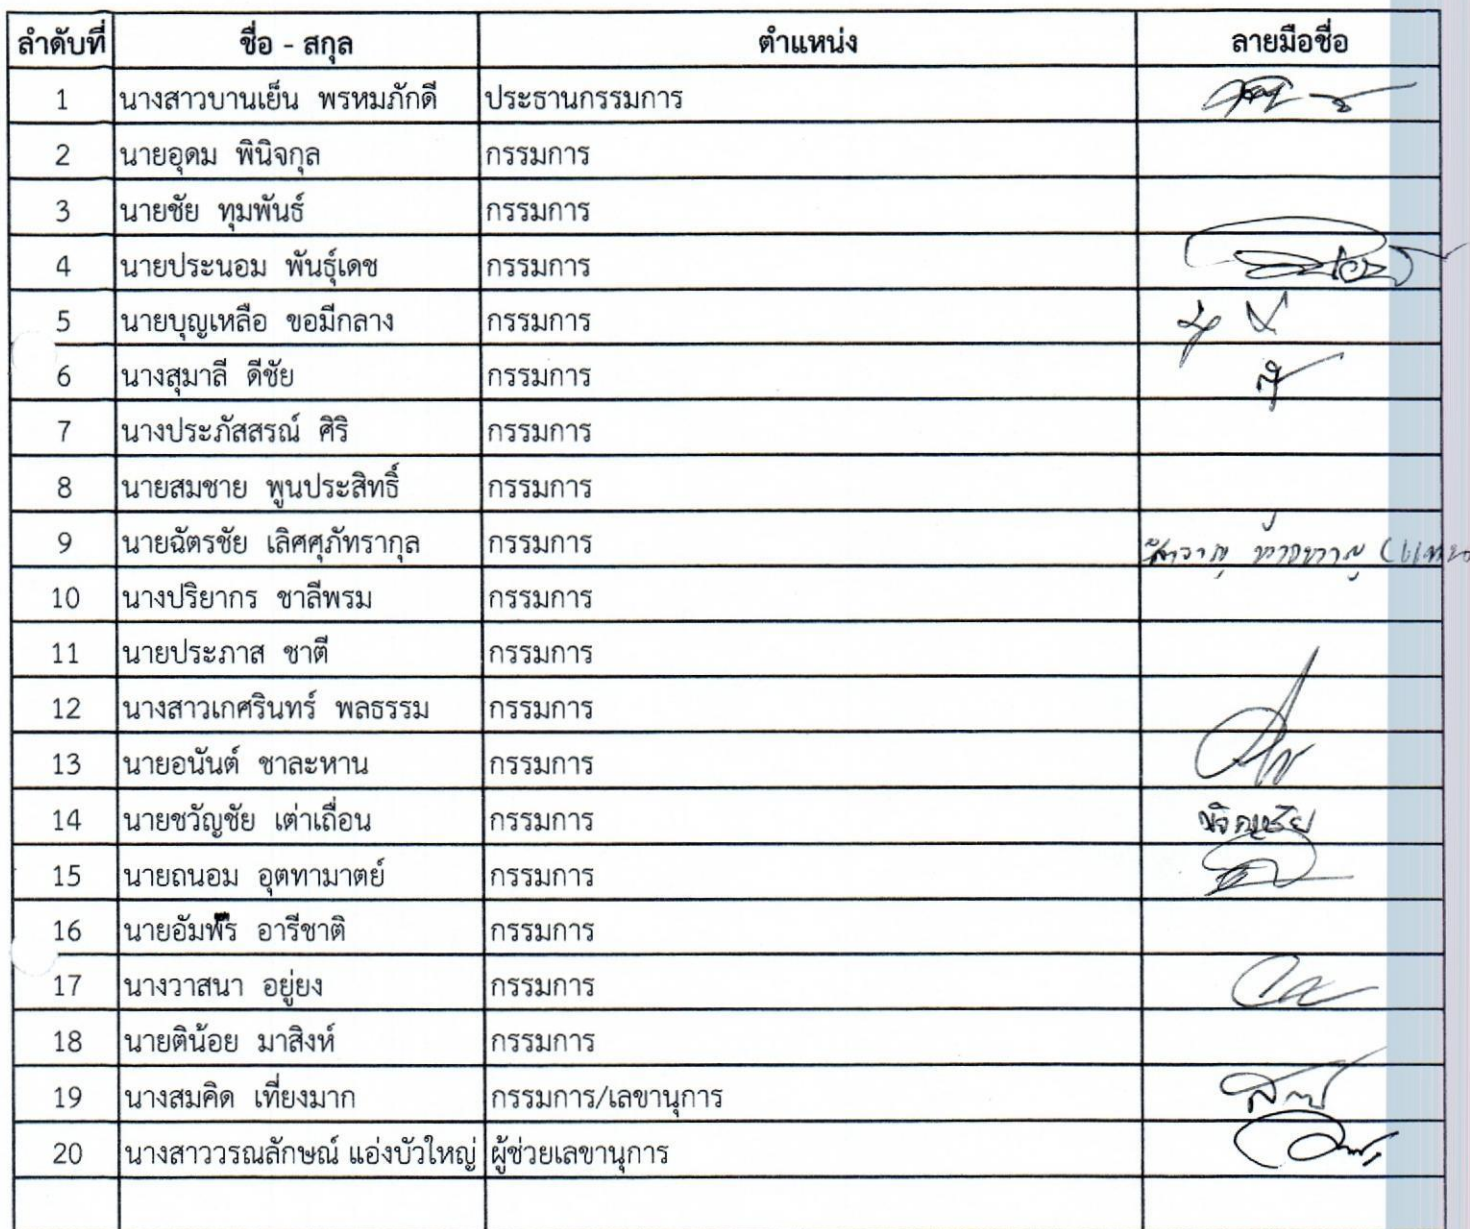 ลำดับที่ ชื่อ - สกุล ตำแหน่ง ลายมือชื่อ
1 นางสาวบานเย็น พรหมภักดี ประธานกรรมการ
2 นายอุดม พินิจกุล กรรมการ
3 นายชัย ทุมพันธ์ กรรมการ
4 นายประนอม พันธุ์เดช กรรมการ
5 นายบุญเหลือ ขอมีกลาง กรรมการ
6 นางสุมาลี ดีชัย กรรมการ
7 นางประภัสสรณ์ ศิริ กรรมการ
8 นายสมชาย พูนประสิทธิ์ กรรมการ
9 นายฉัตรชัย เลิศศุภัทรากุล กรรมการ
10 นางปริยากร ชาลีพรม กรรมการ
11 นายประภาส ชาตี กรรมการ
12 นางสาวเกศรินทร์ พลธรรม กรรมการ
13 นายอนันต์ ชาละหาน กรรมการ
14 นายชวัญชัย เต่าเถื่อน กรรมการ
15 นายถนอม อุตทามาตย์ กรรมการ
16 อารีชาติ กรรมการ
17 นางวาสนา อยู่ยง กรรมการ
18 นายติน้อย มาสิงห์ กรรมการ
19 นางสมคิด เที่ยงมาก กรรมการ/เลขานุการ
20 นางสาววรณลักษณ์ แอ่งบัวใหญ่ ผู้ช่วยเลขานุการ